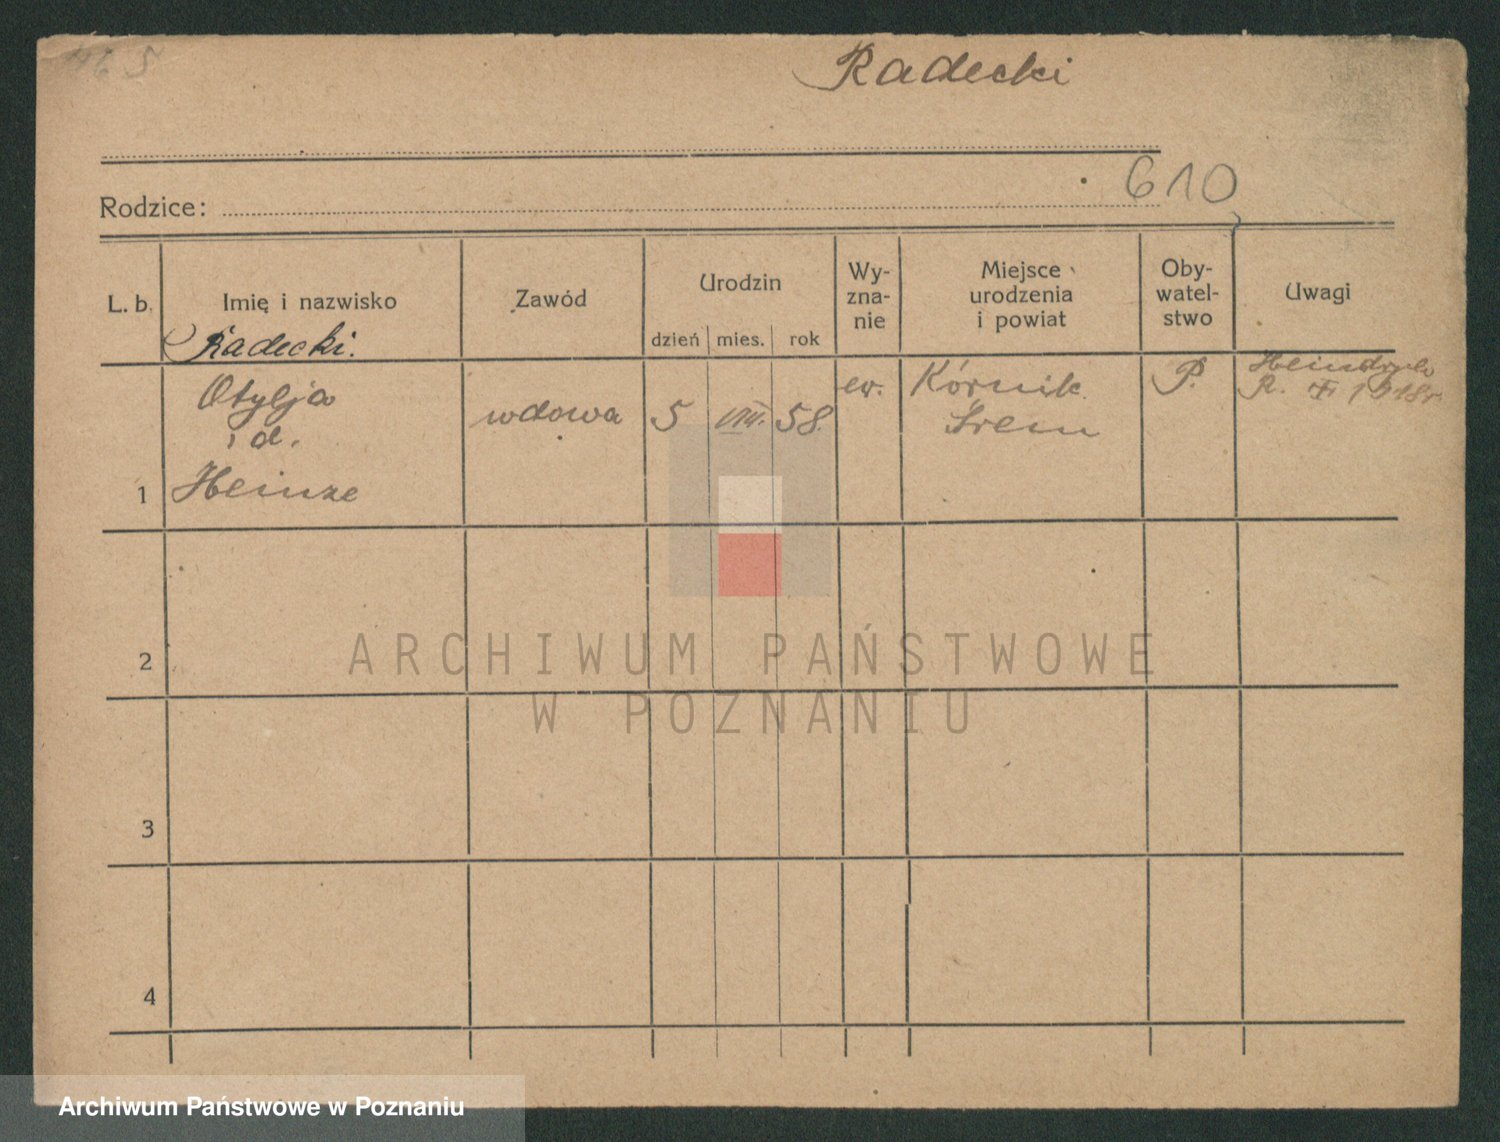 Radecki
610
Rodzice:
L. b. Imię i nazwisko Zawód Urodzin dzień mies. rok Wy-
zna-
nie Miejsce
urodzenia
i powiat Oby-
watel-
stwo Uwagi
Radecki.
1 Otylja
i d.
Heinze wdowa 5 VIII. 58. ew. Kórnik
Śrem P. Heindrych
R. 1918r.
2
3
4
ARCHIWUM PAŃSTWOWE
W POZNANIU
Archiwum Państwowe w Poznaniu